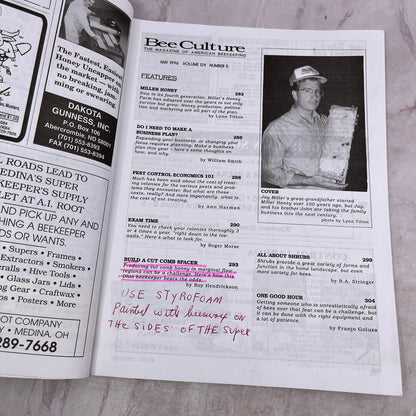 The Fastest, Easiest
Honey Uncapper,
the market with
no breaking, jam-
ming or swearing.
DAKOTA
GUNNESS, INC.
P.O. Box 106
Abercrombie, ND 58001
(701) 553-8393
FAX (701) 553-8394
L ROADS LEAD TO
MEDINA'S SUPER
EEKEEPER'S SUPPLY
TLET AT A.I. ROOT
ND PICK UP ANY AND
NING & BEEKEEPER
DS OR WANTS.
Supers • Frames
Extractors • Smokers
rails • Hive Tools
Glass Jars • Lids
ng Gear • Craftwax
os • Posters • More
OT COMPANY
• MEDINA, OH
289-7668
Bee Culture
THE MAGAZINE OF AMERICAN BEEKEEPING
MAY 1996 VOLUME 124 NUMBER 5
FEATURES
MILLER HONEY 282
Now in its fourth generation, Miller's Honey
Farm has adapted over the years to not only
survive but grow. Strong production, pollina-
tion and marketing are all part of the plan.
by Lynn Tilton
DO I NEED TO MAKE A
BUSINESS PLAN? 286
Expanding your business, or changing your
focus requires planning. Make a business
plan this year - here's some thoughts on
how, and why.
by William Smith
PEST CONTROL ECONOMICS 101 288
Much has been said about the cost of treat-
ing colonies for the various pests and prob-
lems they encounter. But what are those
costs, really? And more importantly, what is
the cost of not treating.
by Ann Harman
EXAM TIME 290
You need to check your colonies thoroughly 3
or 4 times a year, "right down to the toe-
nails". Here's what to look for.
by Roger Morse
BUILD A CUT COMB SPACER 293
Producing cut comb honey in marginal flow
regions can be a challenge. Here's how this
Ohio beekeeper beats the odds.
by Roy Hendrickson
USE STYROFOAM
Painted with beeswax on
THE SIDES OF THE SUPER
COVER
Jay Miller's great-grandfather started
Miller Honey over 100 years ago, but Jay,
and his brother John are taking the family
business into the next century.
photo by Lynn Tilton
ALL ABOUT SHRUBS 297
Shrubs provide a great variety of forms and
function in the home landscape, but even
more variety for bees.
by B.A. Stringer
ONE GOOD HOUR 304
Getting someone who is unrealistically afraid
of bees over that fear can be a challenge, but
it can be done with the right equipment and
a lot of patience.
by Franjo Goluza